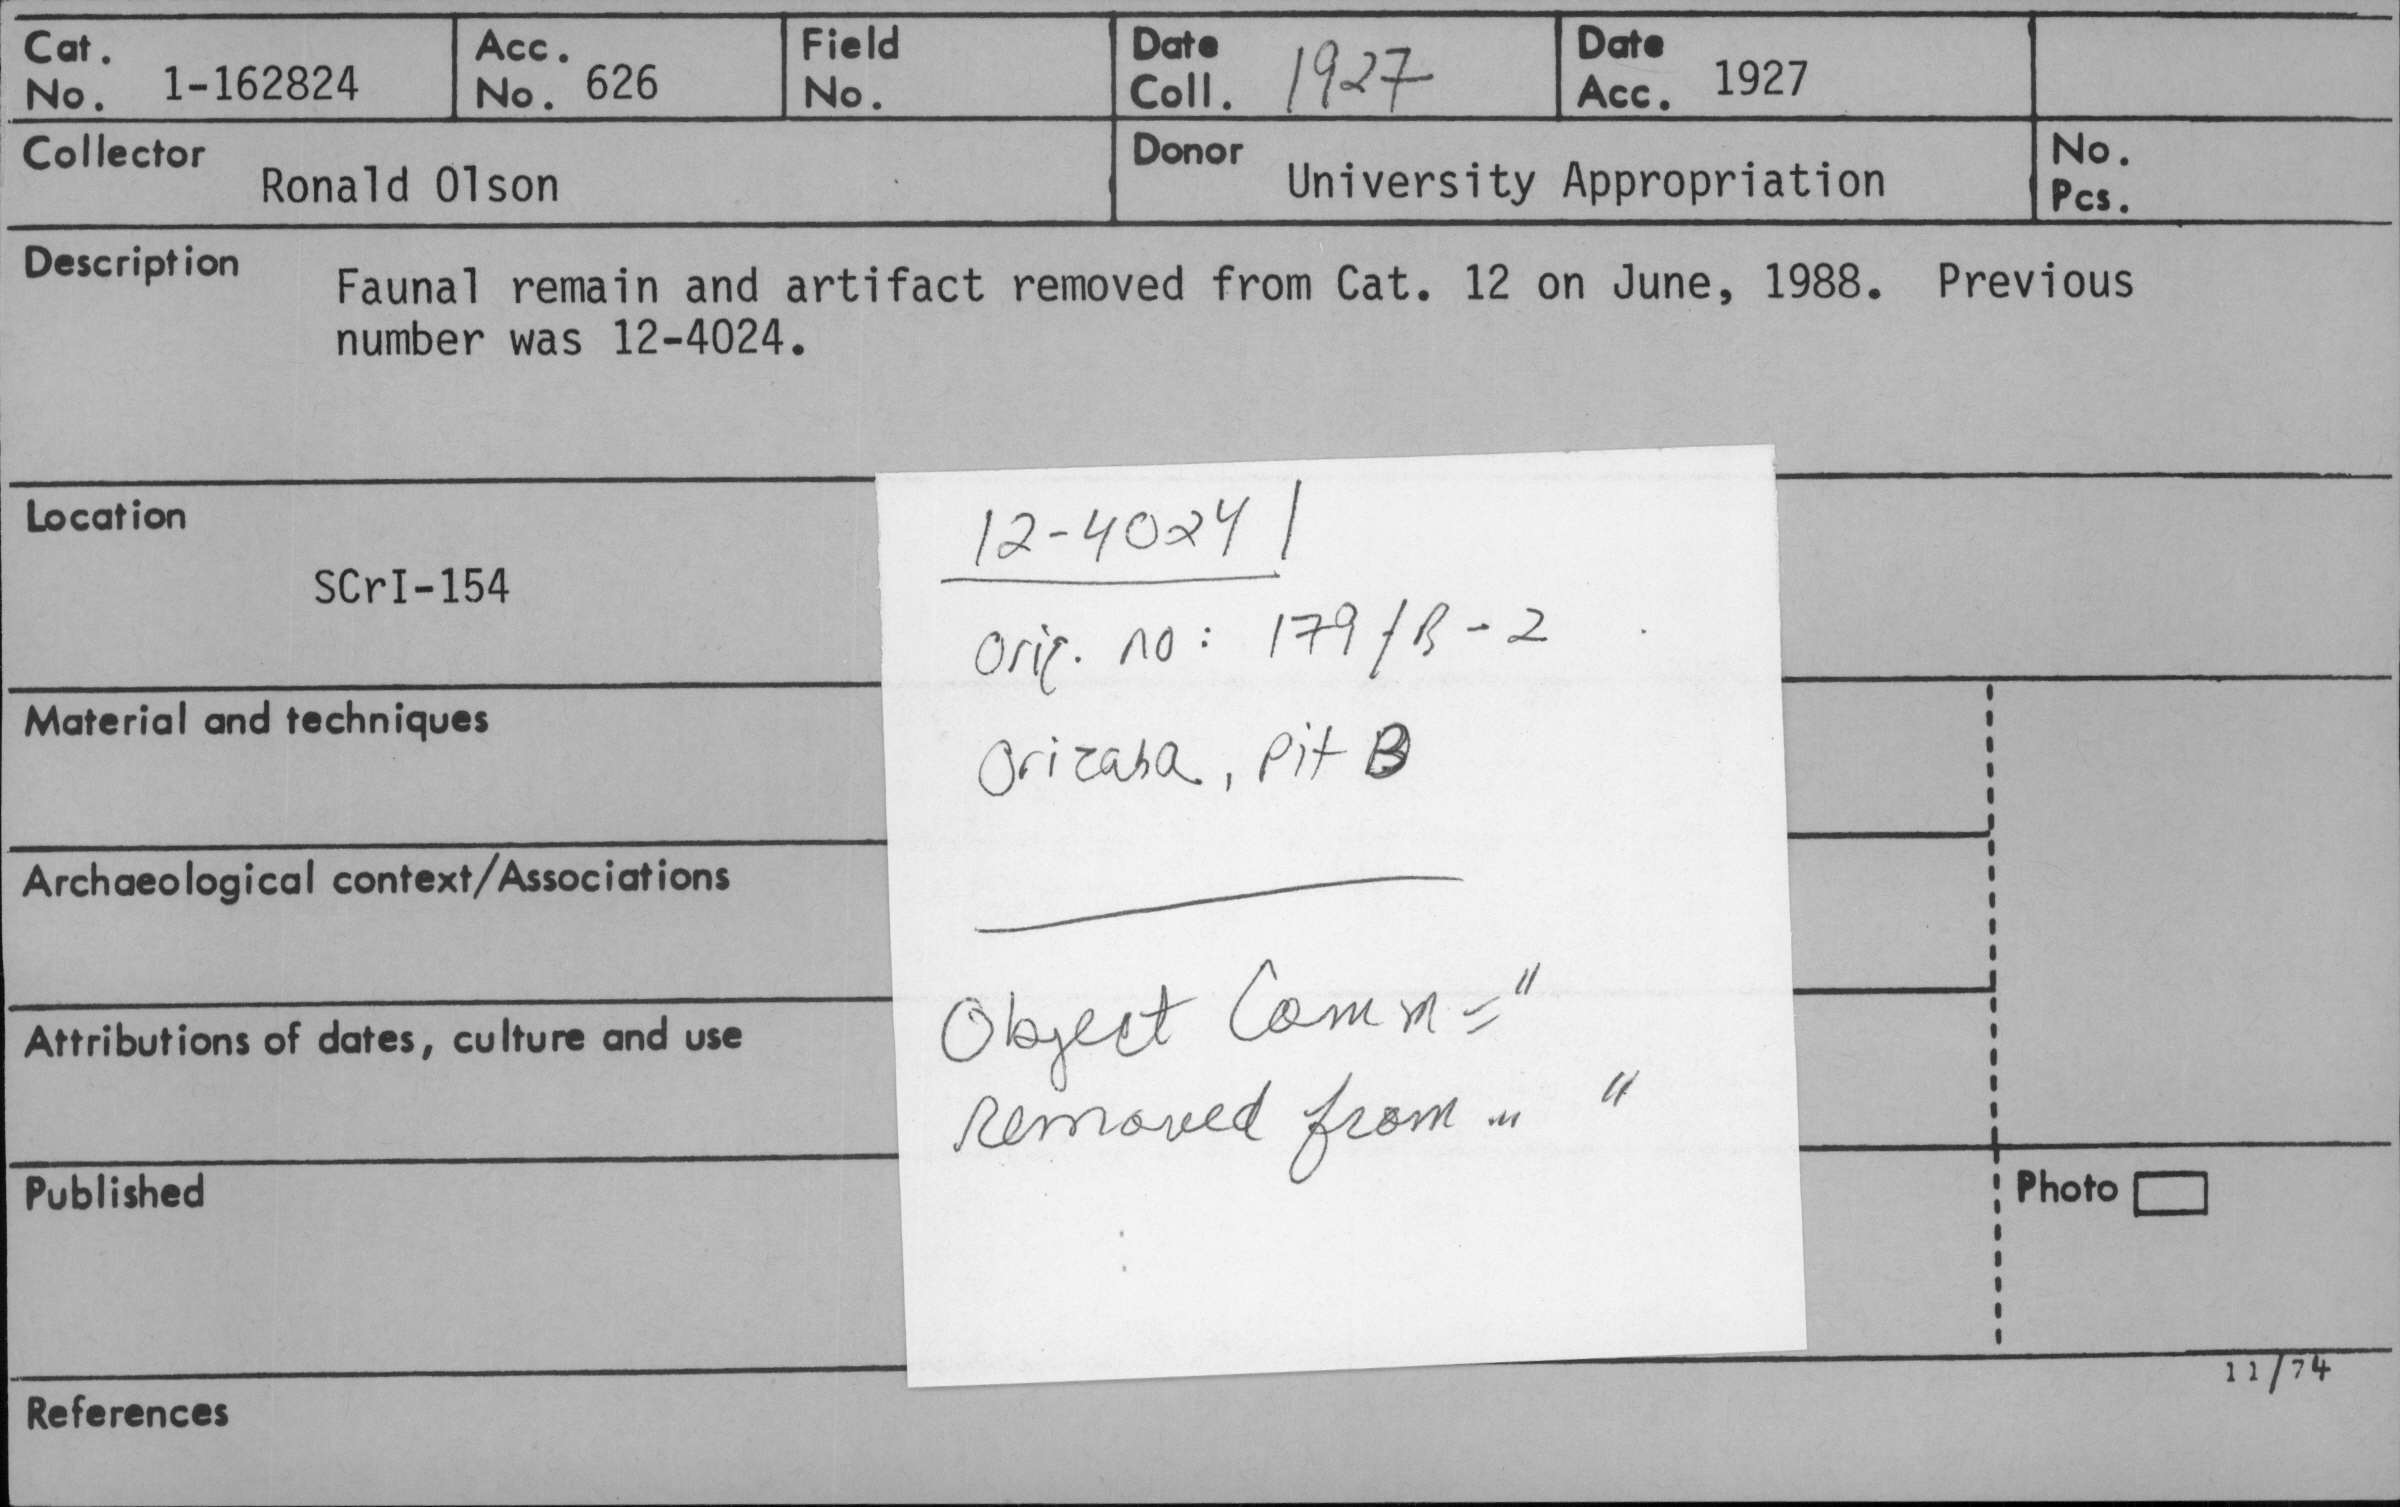 Cat. No. 1-162824
Acc. No. 626
Field No.
Date Coll. 1927
Date Acc. 1927
Collector Ronald Olson
Donor University Appropriation
No. Pcs.
Description Faunal remain and artifact removed from Cat. 12 on June, 1988. Previous
number was 12-4024.
Location
SCrI-154
12-4024
Orig. no: 179/B-2
Orizaba, Pit B
Object Comm="
Removed from ... "
Material and techniques
Archaeological context/Associations
Attributions of dates, culture and use
Published
Photo
11/74
References